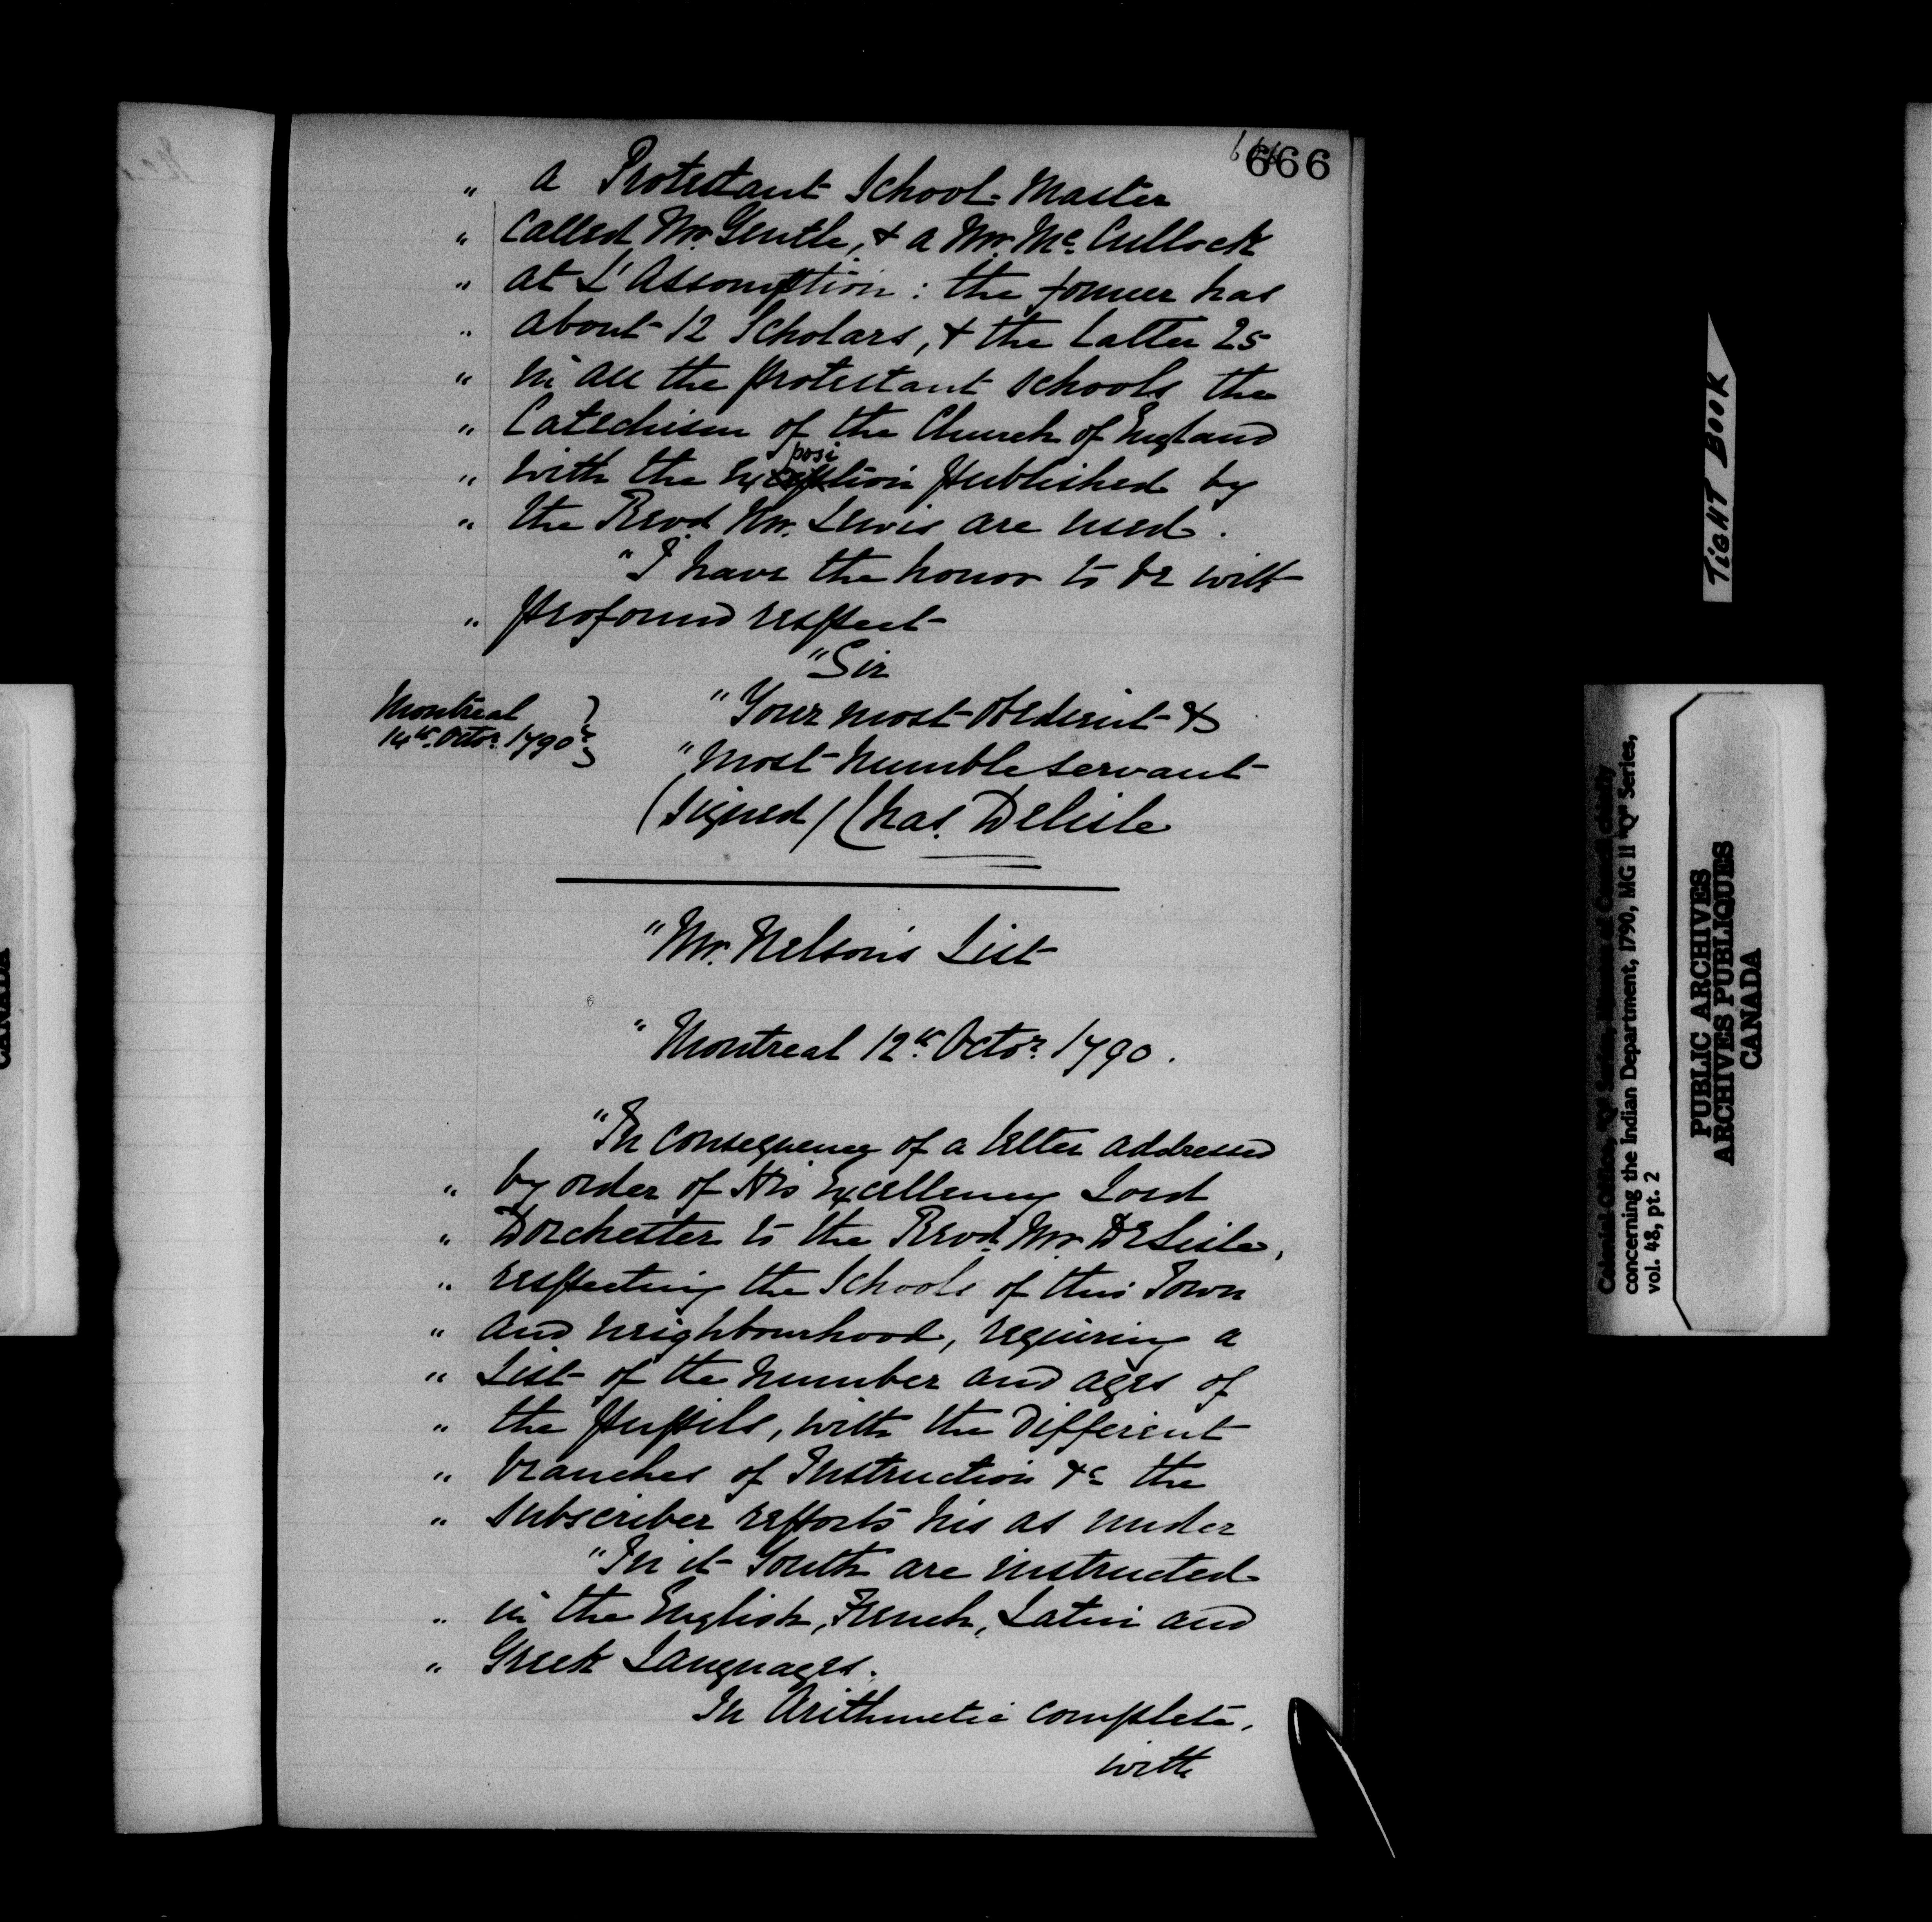 666
" a Protestant School-Master
" called Mr. Gentle, & a Mr. Mc. Cullock
" at L'Assomption: the former has
" about 12 Scholars, & the latter 25
" in all the protestant schools the
" Catechism of the Church of England
posi
" with the Exception published by
" the Revd Mr. Lewis are used.
"I have the honor to be with
" profound respect
"Sir
Montreal
14th. Octor. 1790
"Your most obedient &
"most humble servant
(signed) Chas. Delisle
"Mr. Nelson's List
"Montreal 12th. Octor. 1790.
"In consequence of a letter addressed
" by order of His Excellency Lord
" Dorchester to the Revd. Mr. DeLisle,
" respecting the Schools of this Town
" and neighbourhood, requiring a
" List of the number and ages of
" the pupils, with the different
" branches of Instruction &c the
" subscriber reports his as under
"In it Youth are instructed
" in the English, French, Latin and
" Greek Languages.
In Arithmetic complete,
with
TIGHT BOOK
Colonial Office, "Q" Series,
concerning the Indian Department, 1790, MG 11 "Q" Series,
vol. 48, pt. 2
PUBLIC ARCHIVES
ARCHIVES PUBLIQUES
CANADA
CANADA